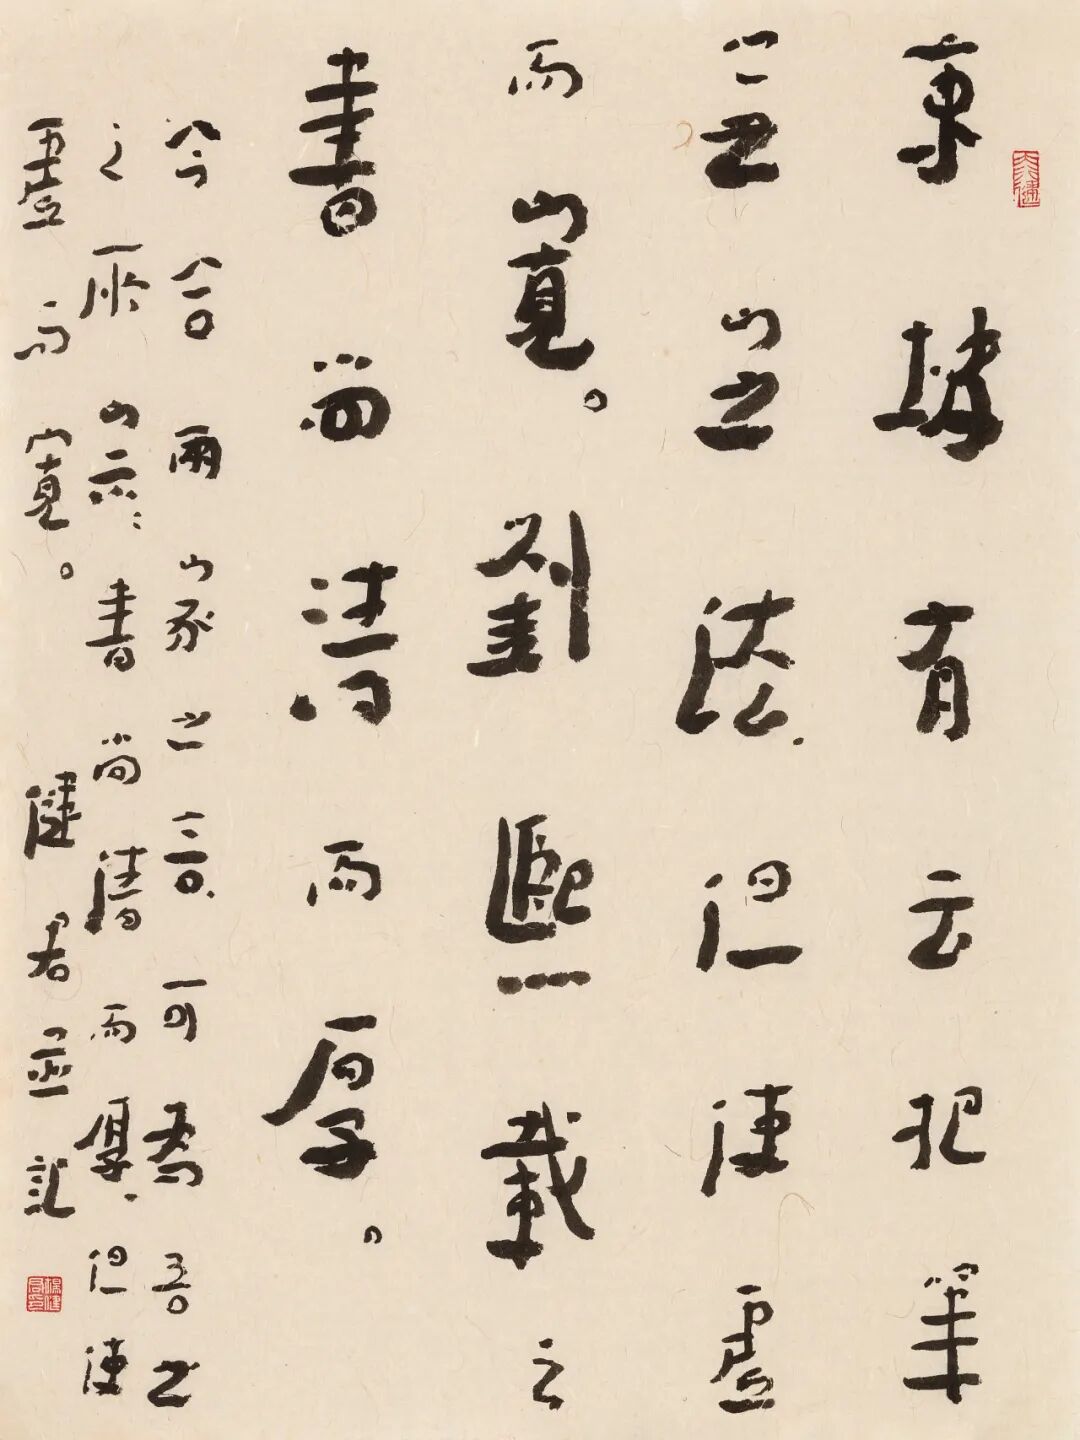 東坡有云把筆
無定法但使虛
而寬。劉熙載之
書尚清而厚。
今合兩家之言可為吾
之宗書尚清而厚但使
虛而寬。健君並記